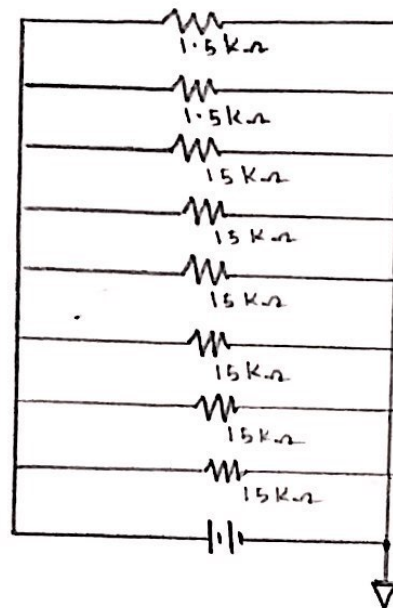 1.5KΩ
1.5KΩ
15KΩ
15KΩ
15KΩ
15KΩ
15KΩ
15KΩ